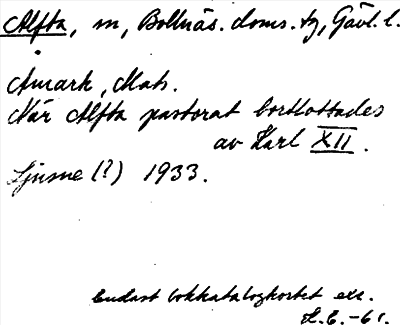 Alfta, m, Bollnäs. doms. tg, Gävl. l.
Åmark, Mats.
När Alfta pastorat bortlottades
av Karl XII.
Ljusne (?) 1933.
Endast bokkatalogkortet exc.
H.E.-61.